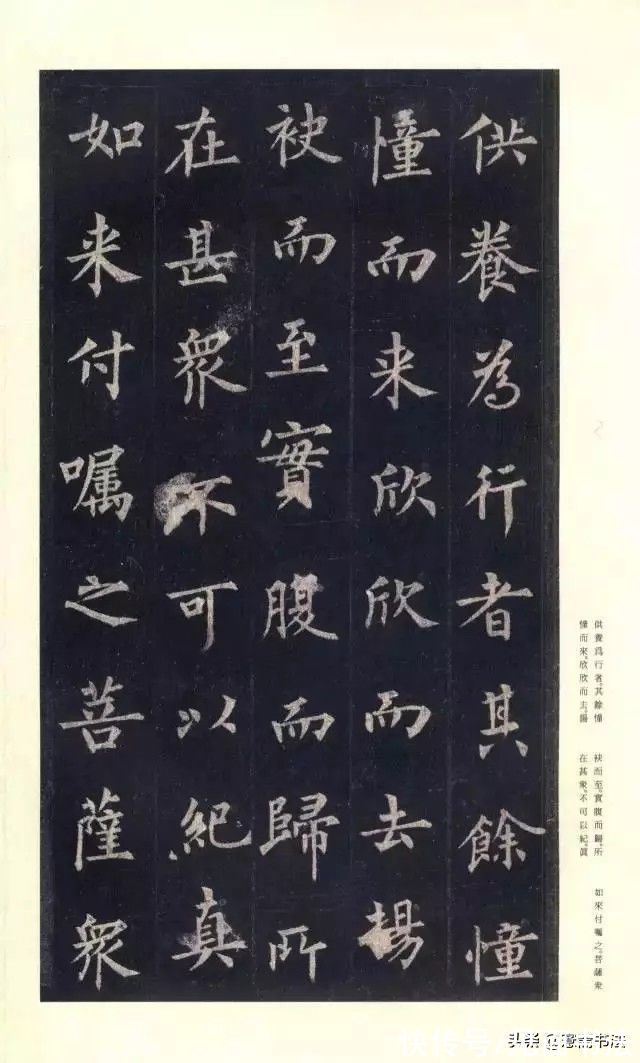 供養為行者其餘憧
憧而来欣欣而去揚
袂而至實腹而歸所
在甚衆不可以紀真
如来付嘱之菩薩衆
供養爲行者。其餘憧
憧而來。欣欣而去。揚
袂而至。實腹而歸。所
在甚衆。不可以紀。眞
如來付囑之。菩薩衆
快传号
头条 书法